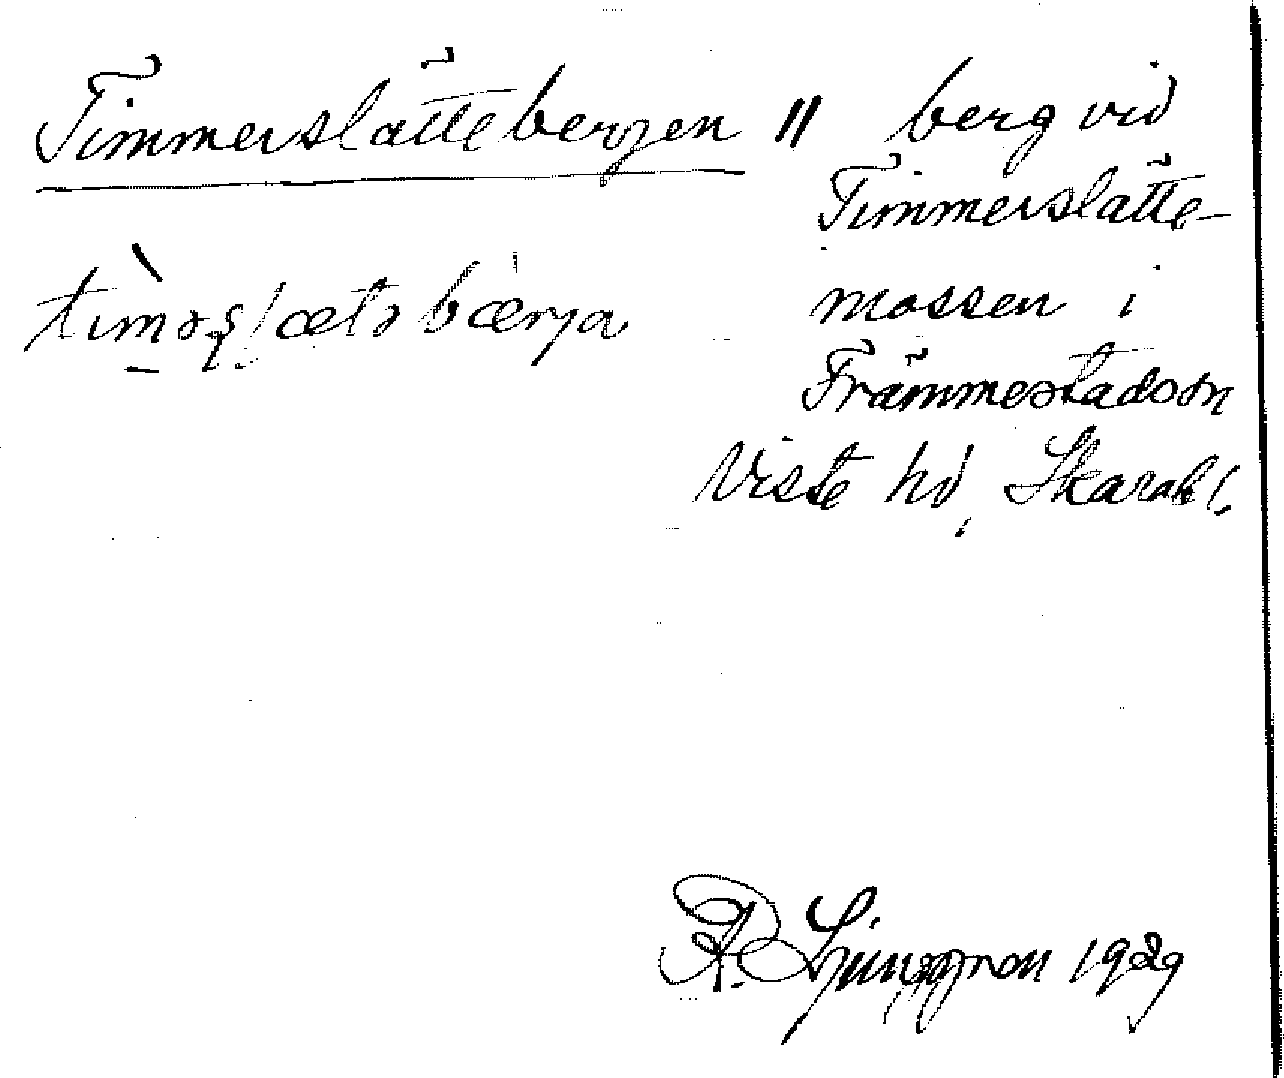 Timmerslättebergen || berg vid
Timmerslätte-
mossen i
Främmestadssn
Viste hd, Skarabl.
R. Ljunggren 1929